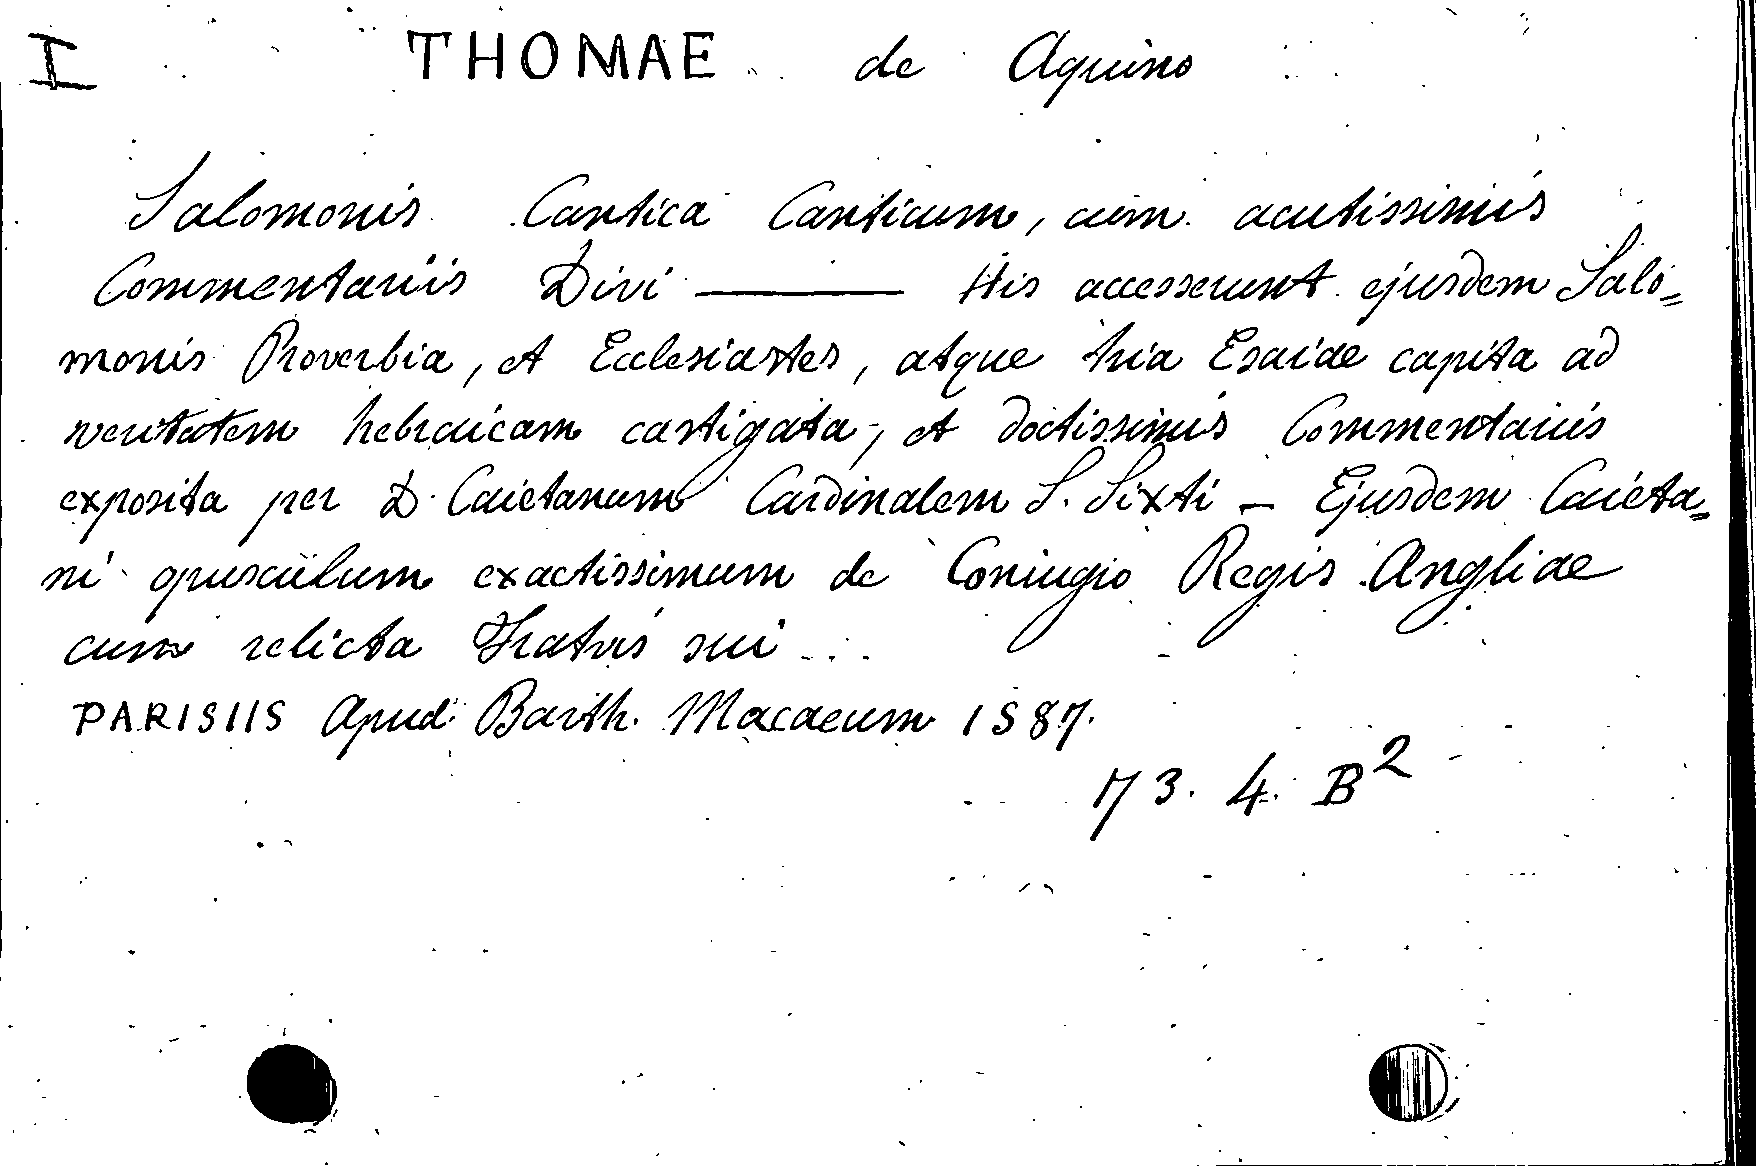 I THOMAE de Aquino
Salomonis Cantica Canticum, cum acutissimis
Commentariis Divi ——— His accesserunt ejusdem Salo=
monis Proverbia, et Ecclesiastes, atque tria Esaiae capita ad
veritatem hebraicam castigata, et doctissimis Commentariis
exposita per D. Caietanum Cardinalem S. Sixti - Ejusdem Caieta=
ni opusculum exactissimum de Coniugio Regis Angliae
cum relicta Fratris sui ...
PARISIIS Apud Barth. Macaeum 1587.
73. 4. B²